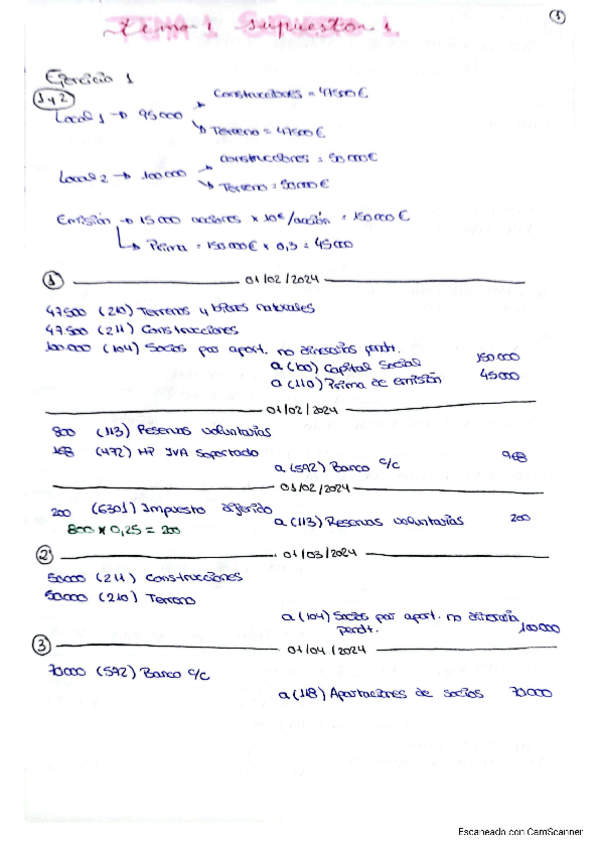 1
tema 1 Supuesto 1
Ejercicio 1
1 y 2
Local 1 → 95000
Construcciones = 47500 €
Terreno = 47500 €
Local 2 → 100000
Construcciones = 50000 €
Terreno = 50000 €
Emisión → 15000 acciones * 10€/acción = 150000 €
Prima = 150000 € x 0,3 = 45000
1 01/02/2024
47500 (210) Terrenos y bienes naturales
47500 (211) Construcciones
100000 (104) Socios por aport. no dinerarias pendt.
a (100) Capital Social 150000
a (110) Prima de emisión 45000
01/02/2024
800 (113) Reservas voluntarias
168 (472) HP IVA Soportado
a (572) Banco c/c 968
01/02/2024
200 (6301) Impuesto diferido
a (113) Reservas voluntarias 200
800 x 0,25 = 200
2 01/03/2024
50000 (211) Construcciones
50000 (210) Terreno
a (104) Socios por aport. no dineraria
pendt. 100000
3 01/04/2024
70000 (572) Banco c/c
a (118) Aportaciones de socios 70000
Escaneado con CamScanner